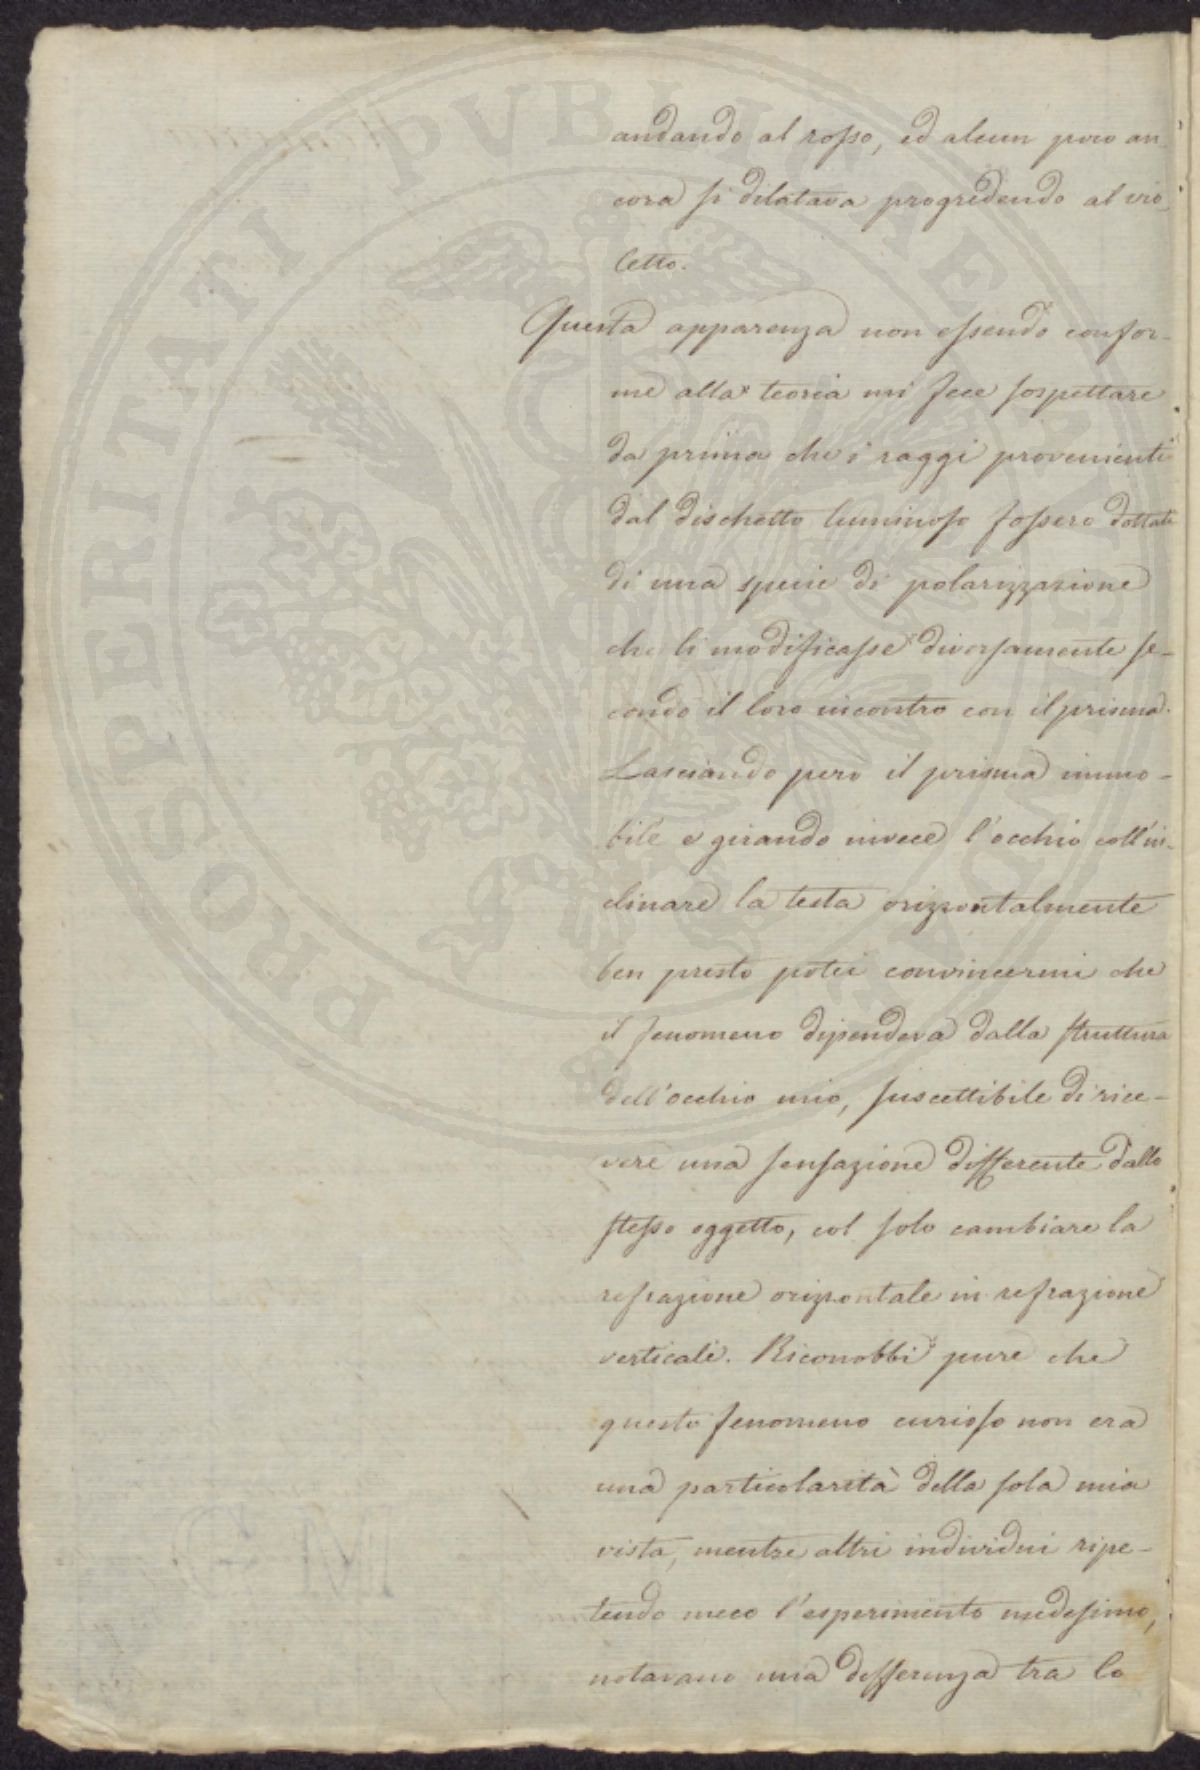 andando al rosso, ed alcun poco an-
cora si dilatava progredendo al vio-
letto.
Questa apparenza non essendo confor-
me alla teoria mi fece sospettare
da prima che i raggi provenienti
dal dischetto luminoso fossero dottati
di una specie di polarizzazione
che li modificasse diversamente se-
condo il loro incontro con il prisma.
Lasciando pero il prisma immo-
bile e girando invece l'occhio coll'in-
clinare la testa orizzontalmente
ben presto potei convincermi che
il fenomeno dipendeva dalla struttura
dell'occhio mio, suscettibile di rice-
vere una sensazione differente dallo
stesso oggetto, col solo cambiare la
refrazione orizzontale in refrazione
verticale. Riconobbi pure che
questo fenomeno curioso non era
una particolarità della sola mia
vista, mentre altri individui ripe-
tendo meco l'esperimento medesimo,
notavano una differenza tra lo
PROSPERITATI PVBLICAE AVGENDAE